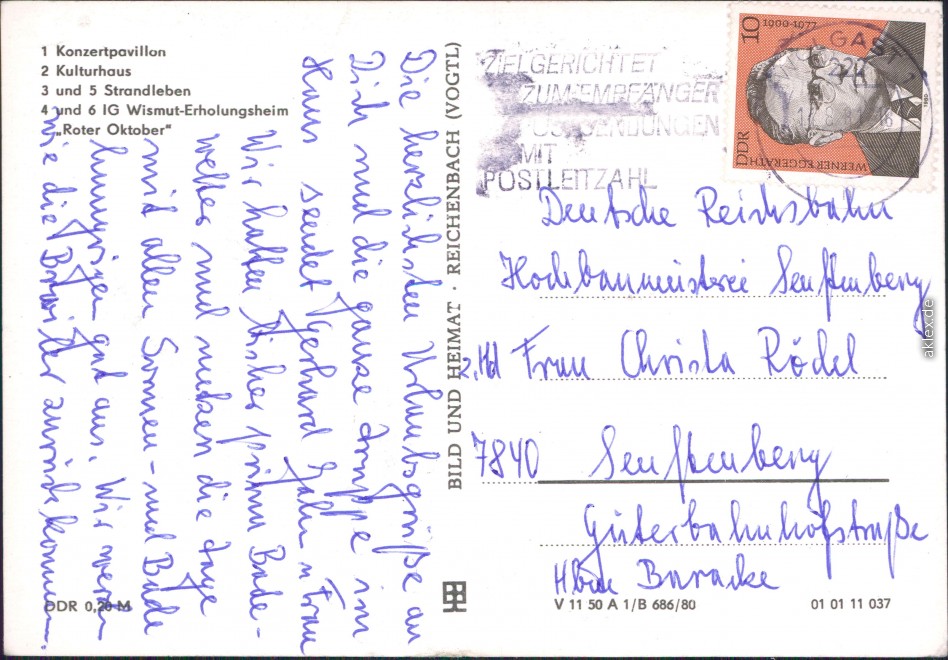 1 Konzertpavillon
2 Kulturhaus
3 und 5 Strandleben
4 und 6 IG Wismut-Erholungsheim
„Roter Oktober"
Die herzlichsten Urlaubsgrüße an
Dich und die ganze Truppe im
Haus sendet Gerhard u Frau
Wir hatten bisher prima Bade-
wetter und nutzen die Tage
mit allen Sonnen- und Bade
hungrigen gut aus. Wir werden
wie die zurück kommen.
DDR 0,20 M
BILD UND HEIMAT · REICHENBACH (VOGTL)
ZIELGERICHTET
ZUM EMPFÄNGER
POSTSENDUNGEN
MIT
POSTLEITZAHL
GAST
10 1900-1977
DDR
WERNER EGGERATH
1980
Deutsche Reichsbahn
Hochbaumeisterei Senftenberg
z. Hd Frau Christa Rödel
7840 Senftenberg
Güterbahnhofstraße
Baracke
V 11 50 A 1/B 686/80
01 01 11 037
aklex.de